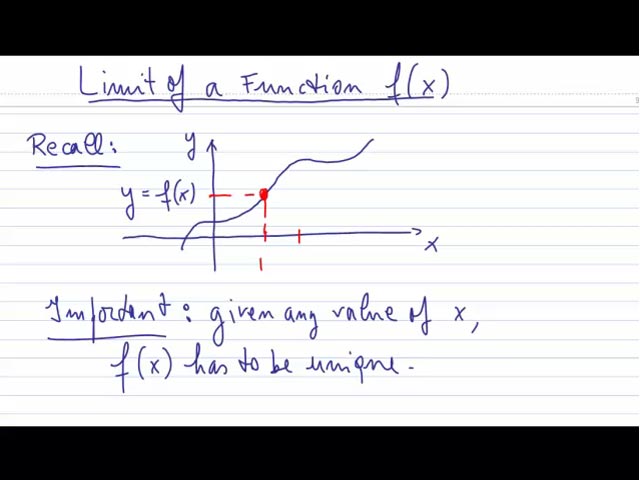 Limit of a Function f(x)
Recall:
y
y = f(x)
x
1
Important: given any value of x,
f(x) has to be unique.